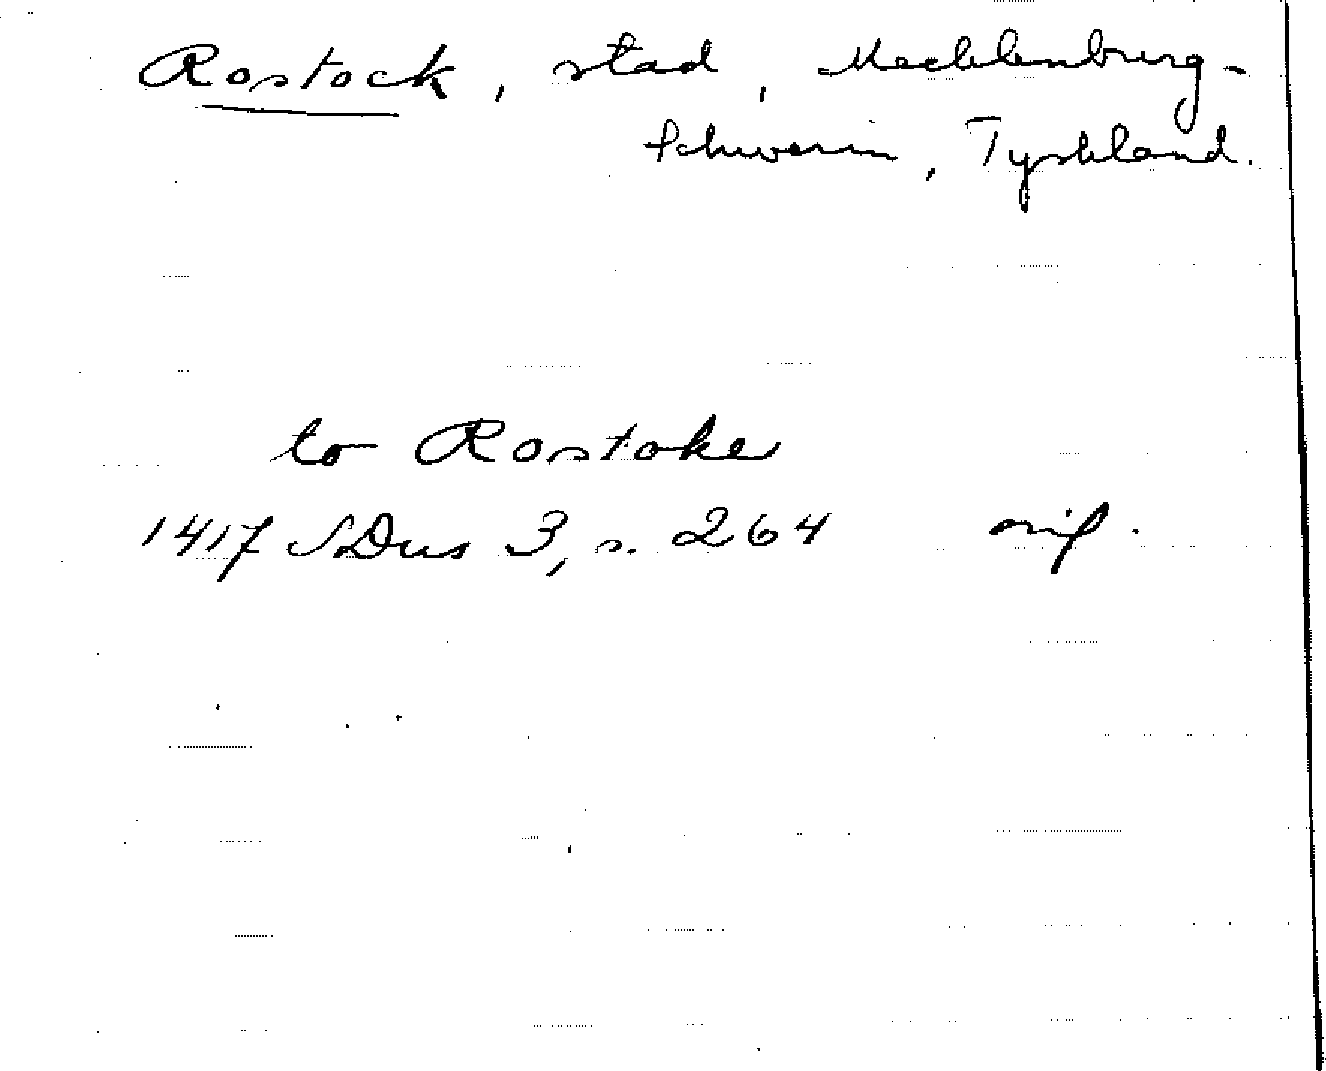 Rostock, stad, Mecklenburg-
Schwerin, Tyskland.
to Rostoke
1417 SDns 3, s. 264 orig.